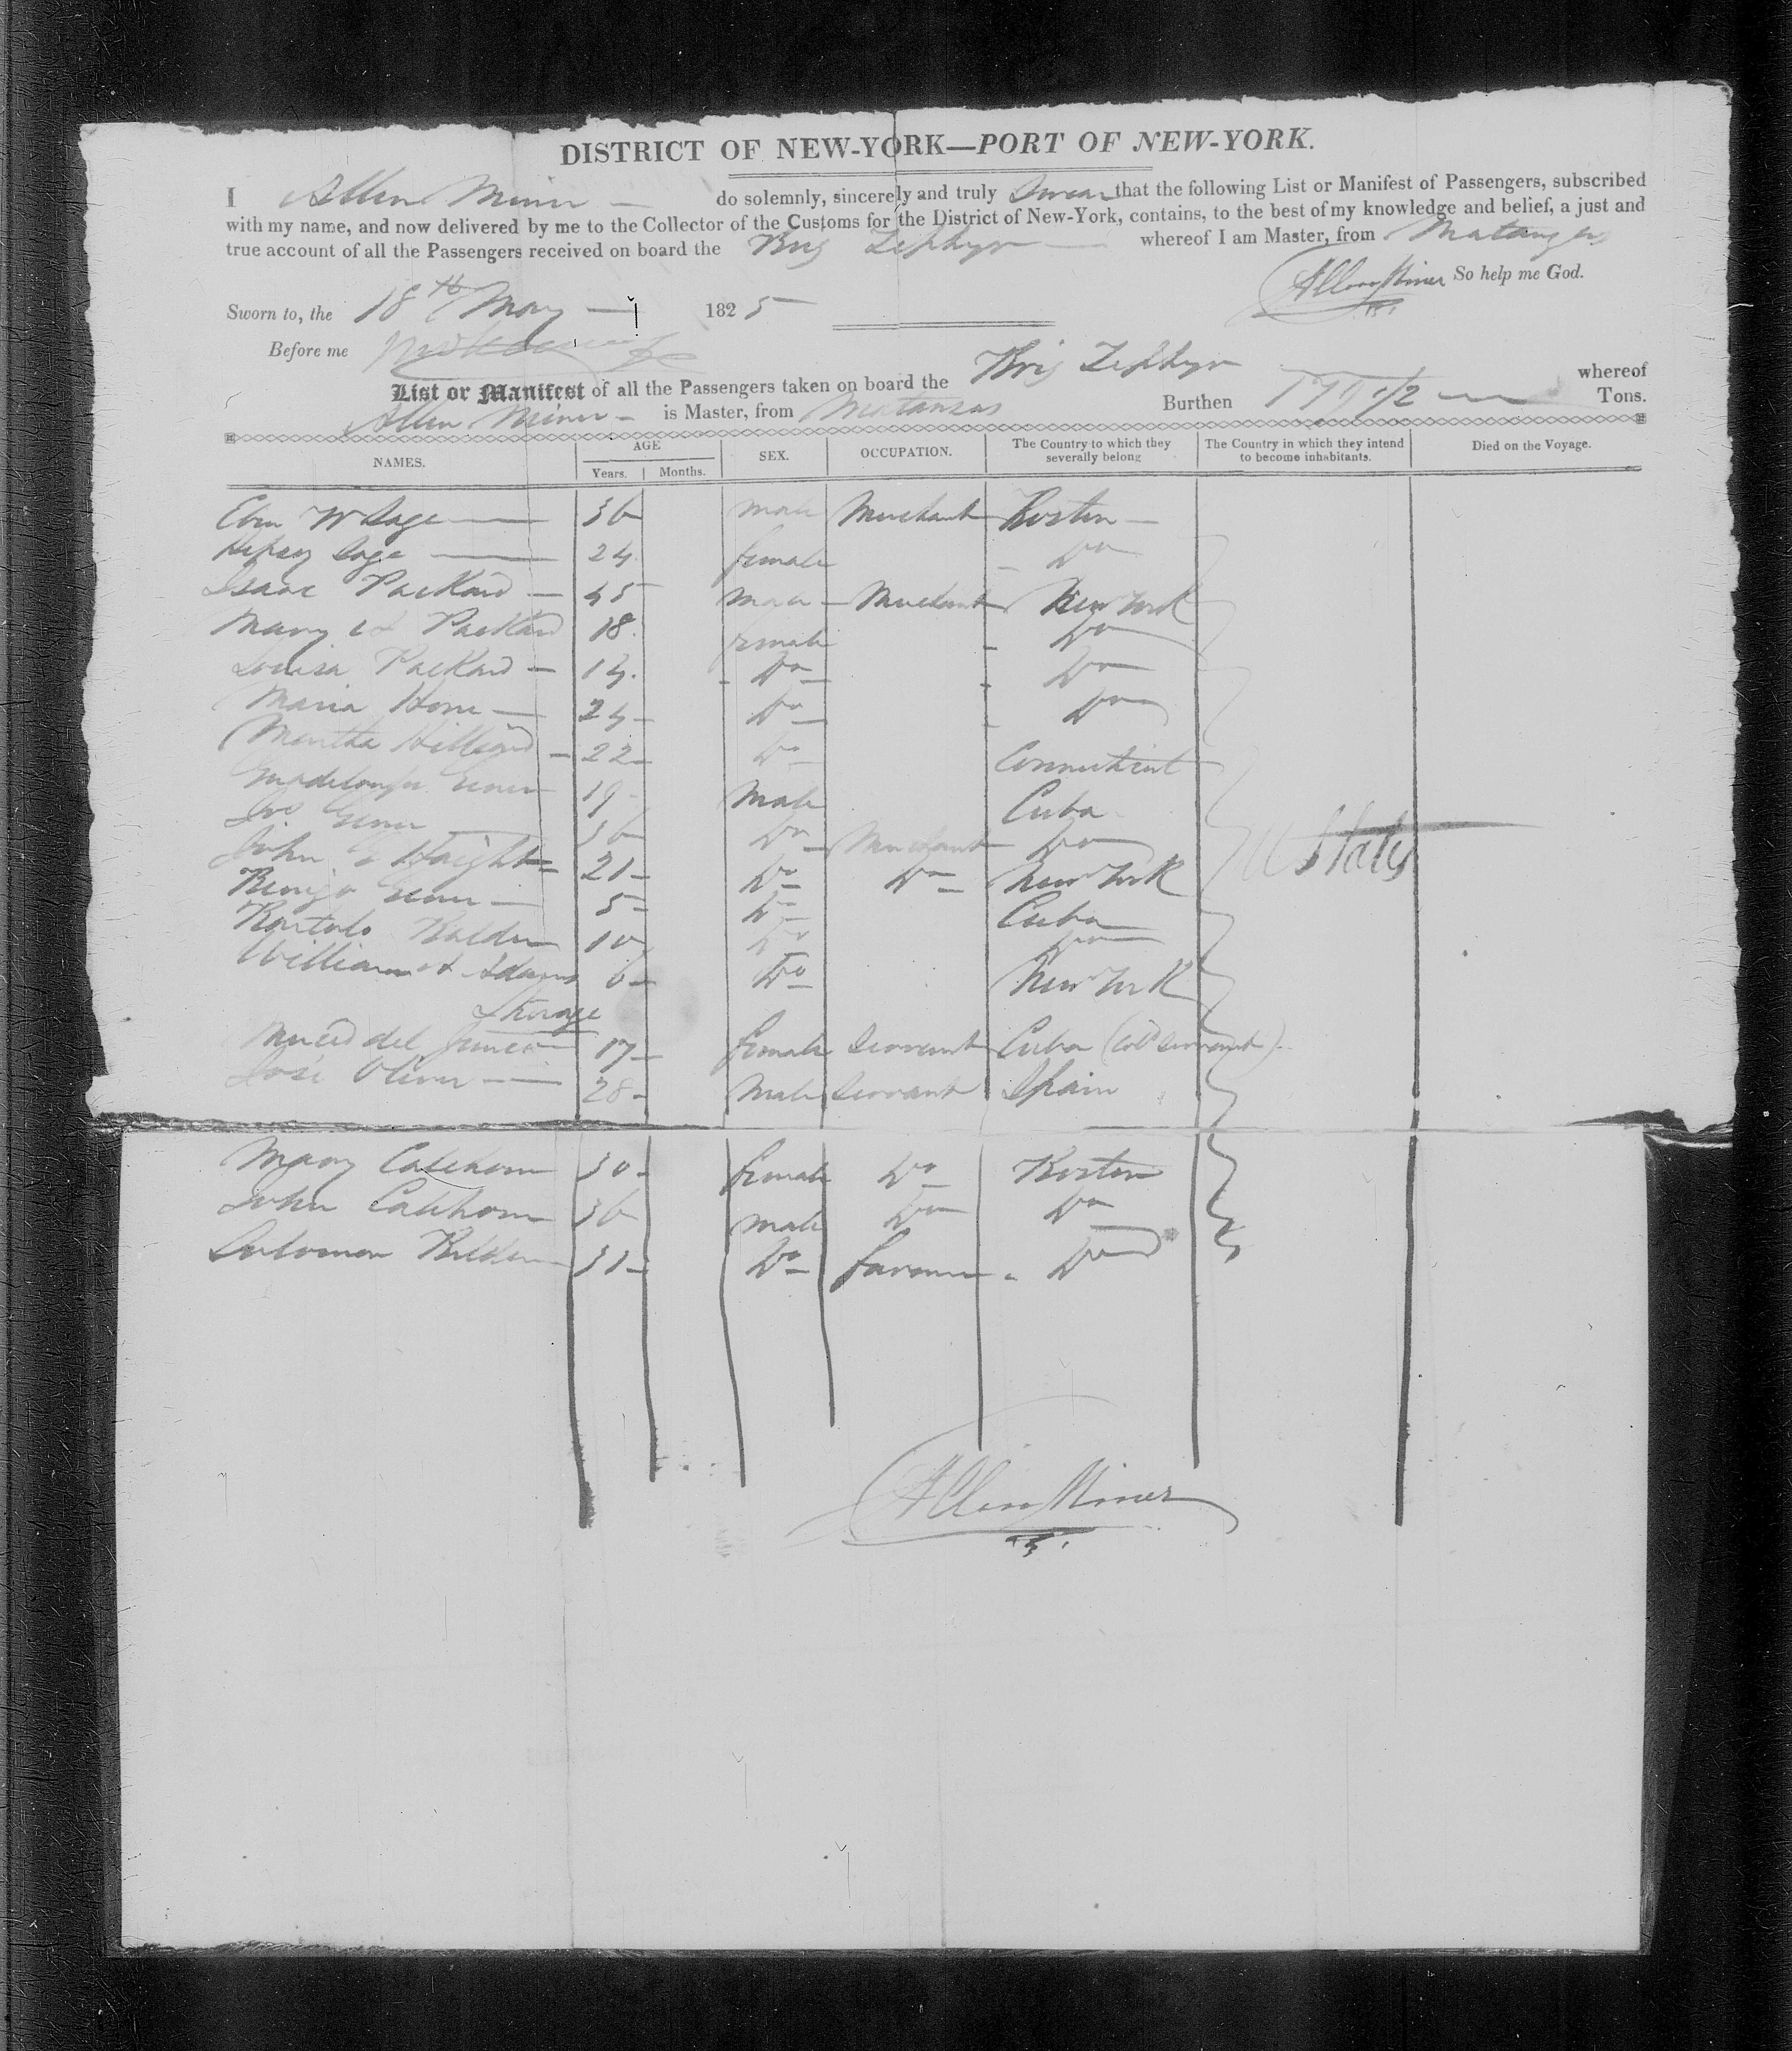 DISTRICT OF NEW-YORK—PORT OF NEW-YORK.
I Allen Miner do solemnly, sincerely and truly Swear that the following List or Manifest of Passengers, subscribed
with my name, and now delivered by me to the Collector of the Customs for the District of New-York, contains, to the best of my knowledge and belief, a just and
true account of all the Passengers received on board the Brig Zephyr whereof I am Master, from Matanzas
Allen Miner So help me God.
Sworn to, the 18th May 1825
Before me
List or Manifest of all the Passengers taken on board the Brig Zephyr whereof
Allen Miner is Master, from Matanzas Burthen Tons.
NAMES. AGE Years. Months. SEX. OCCUPATION. The Country to which they severally belong The Country in which they intend to become inhabitants. Died on the Voyage.
Eben W Sage 36 male Merchant Boston
Hepsy Sage 24 female Do
Isaac Packard 45 male Merchant New York
Mary Packard 18 female Do
Louisa Packard 14 Do Do
Maria Horn 24 Do Do
Martha Hilliard 22 Do Connecticut
19 Male Cuba
36 Do Merchant Do
John Haight 21 Do Do New York U States
5 Do Cuba
10 Do Do
William H Adams 6 Do New York
Sterage
17 female Servant Cuba (Cold Servant)
José Oliver 28 Male Servant Spain
Mary Calehorn 30 female Do Boston
John Calehorn 36 male Do Do
Solomon 31 Do farmer Do
Allen Miner